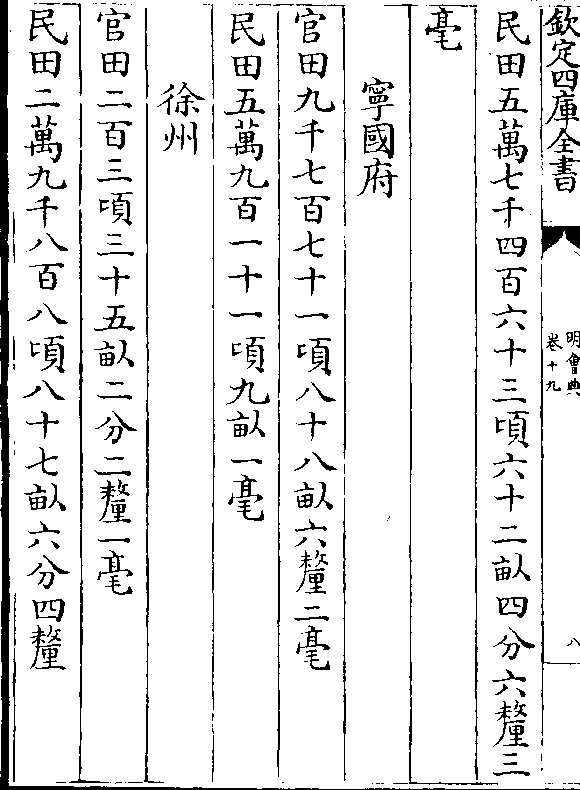 欽定四庫全書
明會典
卷十九
八
民田五萬七千四百六十三頃六十二畒四分六釐三
毫
寧國府
官田九千七百七十一頃八十八畒六釐二毫
民田五萬九百一十一頃九畒一毫
徐州
官田二百三頃三十五畒二分二釐一毫
民田二萬九千八百八頃八十七畒六分四釐